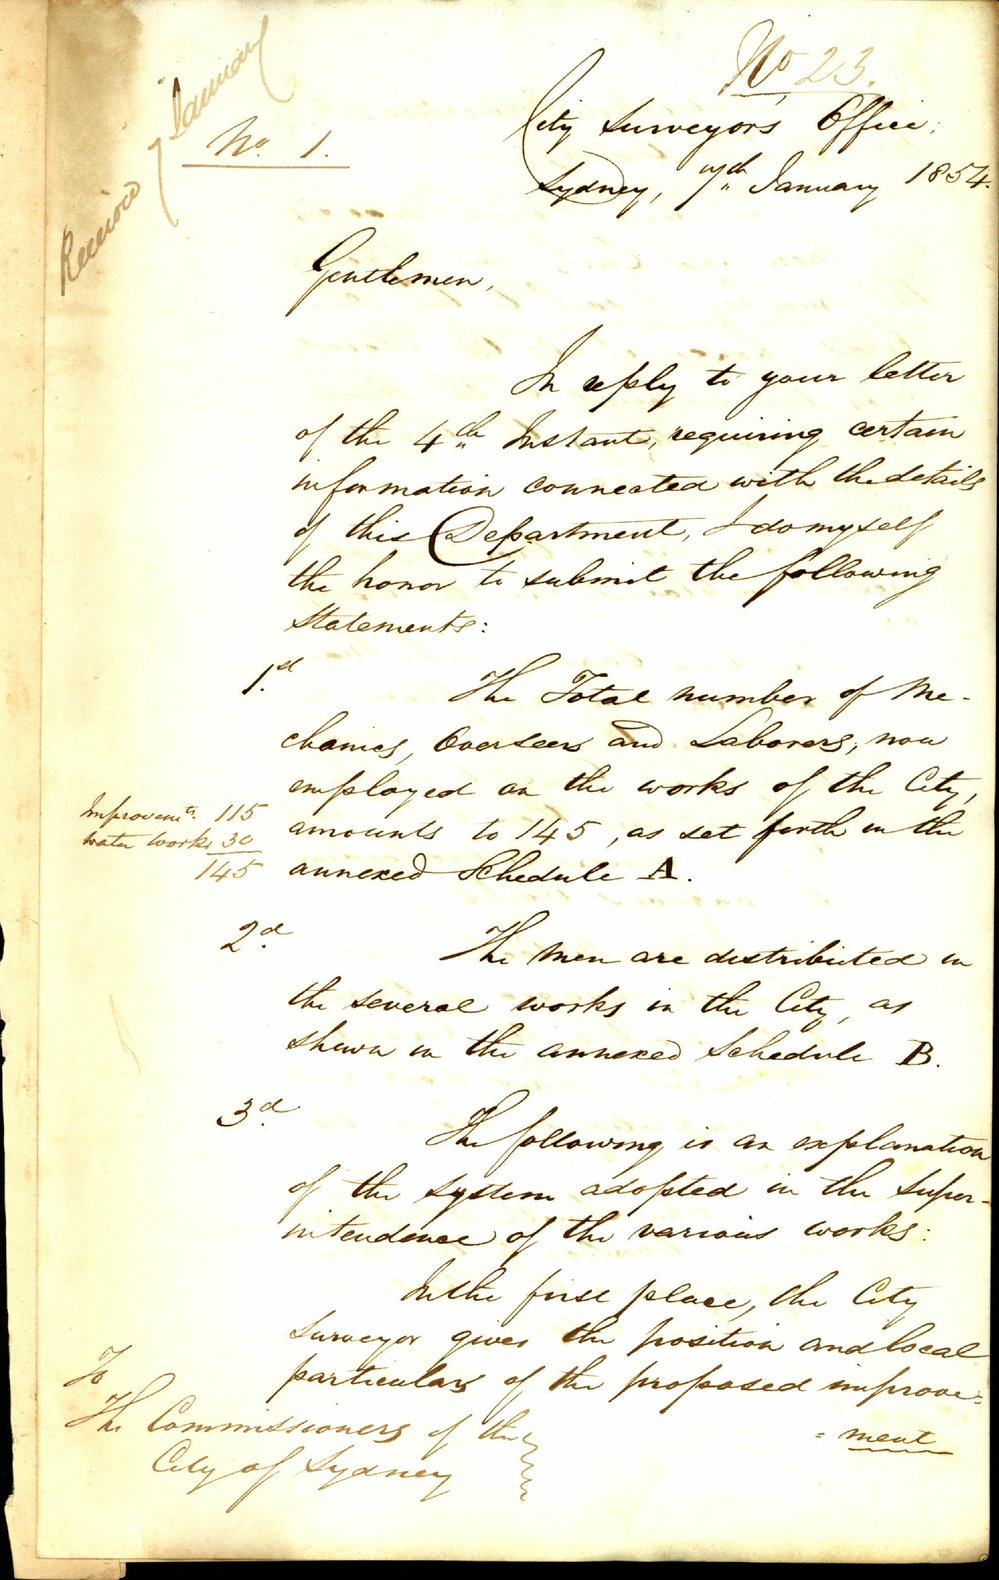 No 23.
Received 7 January
No. 1.
City Surveyor's Office;
Sydney, 7th January 1854.
Gentlemen,
In reply to your letter
of the 4th Instant, requiring certain
information connected with the details
of this Department, I do myself
the honor to submit the following
statements:
1st. The Total number of Me-
chanics, Overseers and Laborers, now
employed on the works of the City,
amounts to 145, as set forth in the
annexed Schedule A.
Improvemts. 115
Water Works 30
145
2d. The men are distributed in
the several works in the City, as
shewn in the annexed Schedule B.
3d. The following is an explanation
of the system adopted in the super-
intendence of the various works:
In the first place, the City
Surveyor gives the position and local
particulars of the proposed improve=
=ment
To
The Commissioners of the
City of Sydney